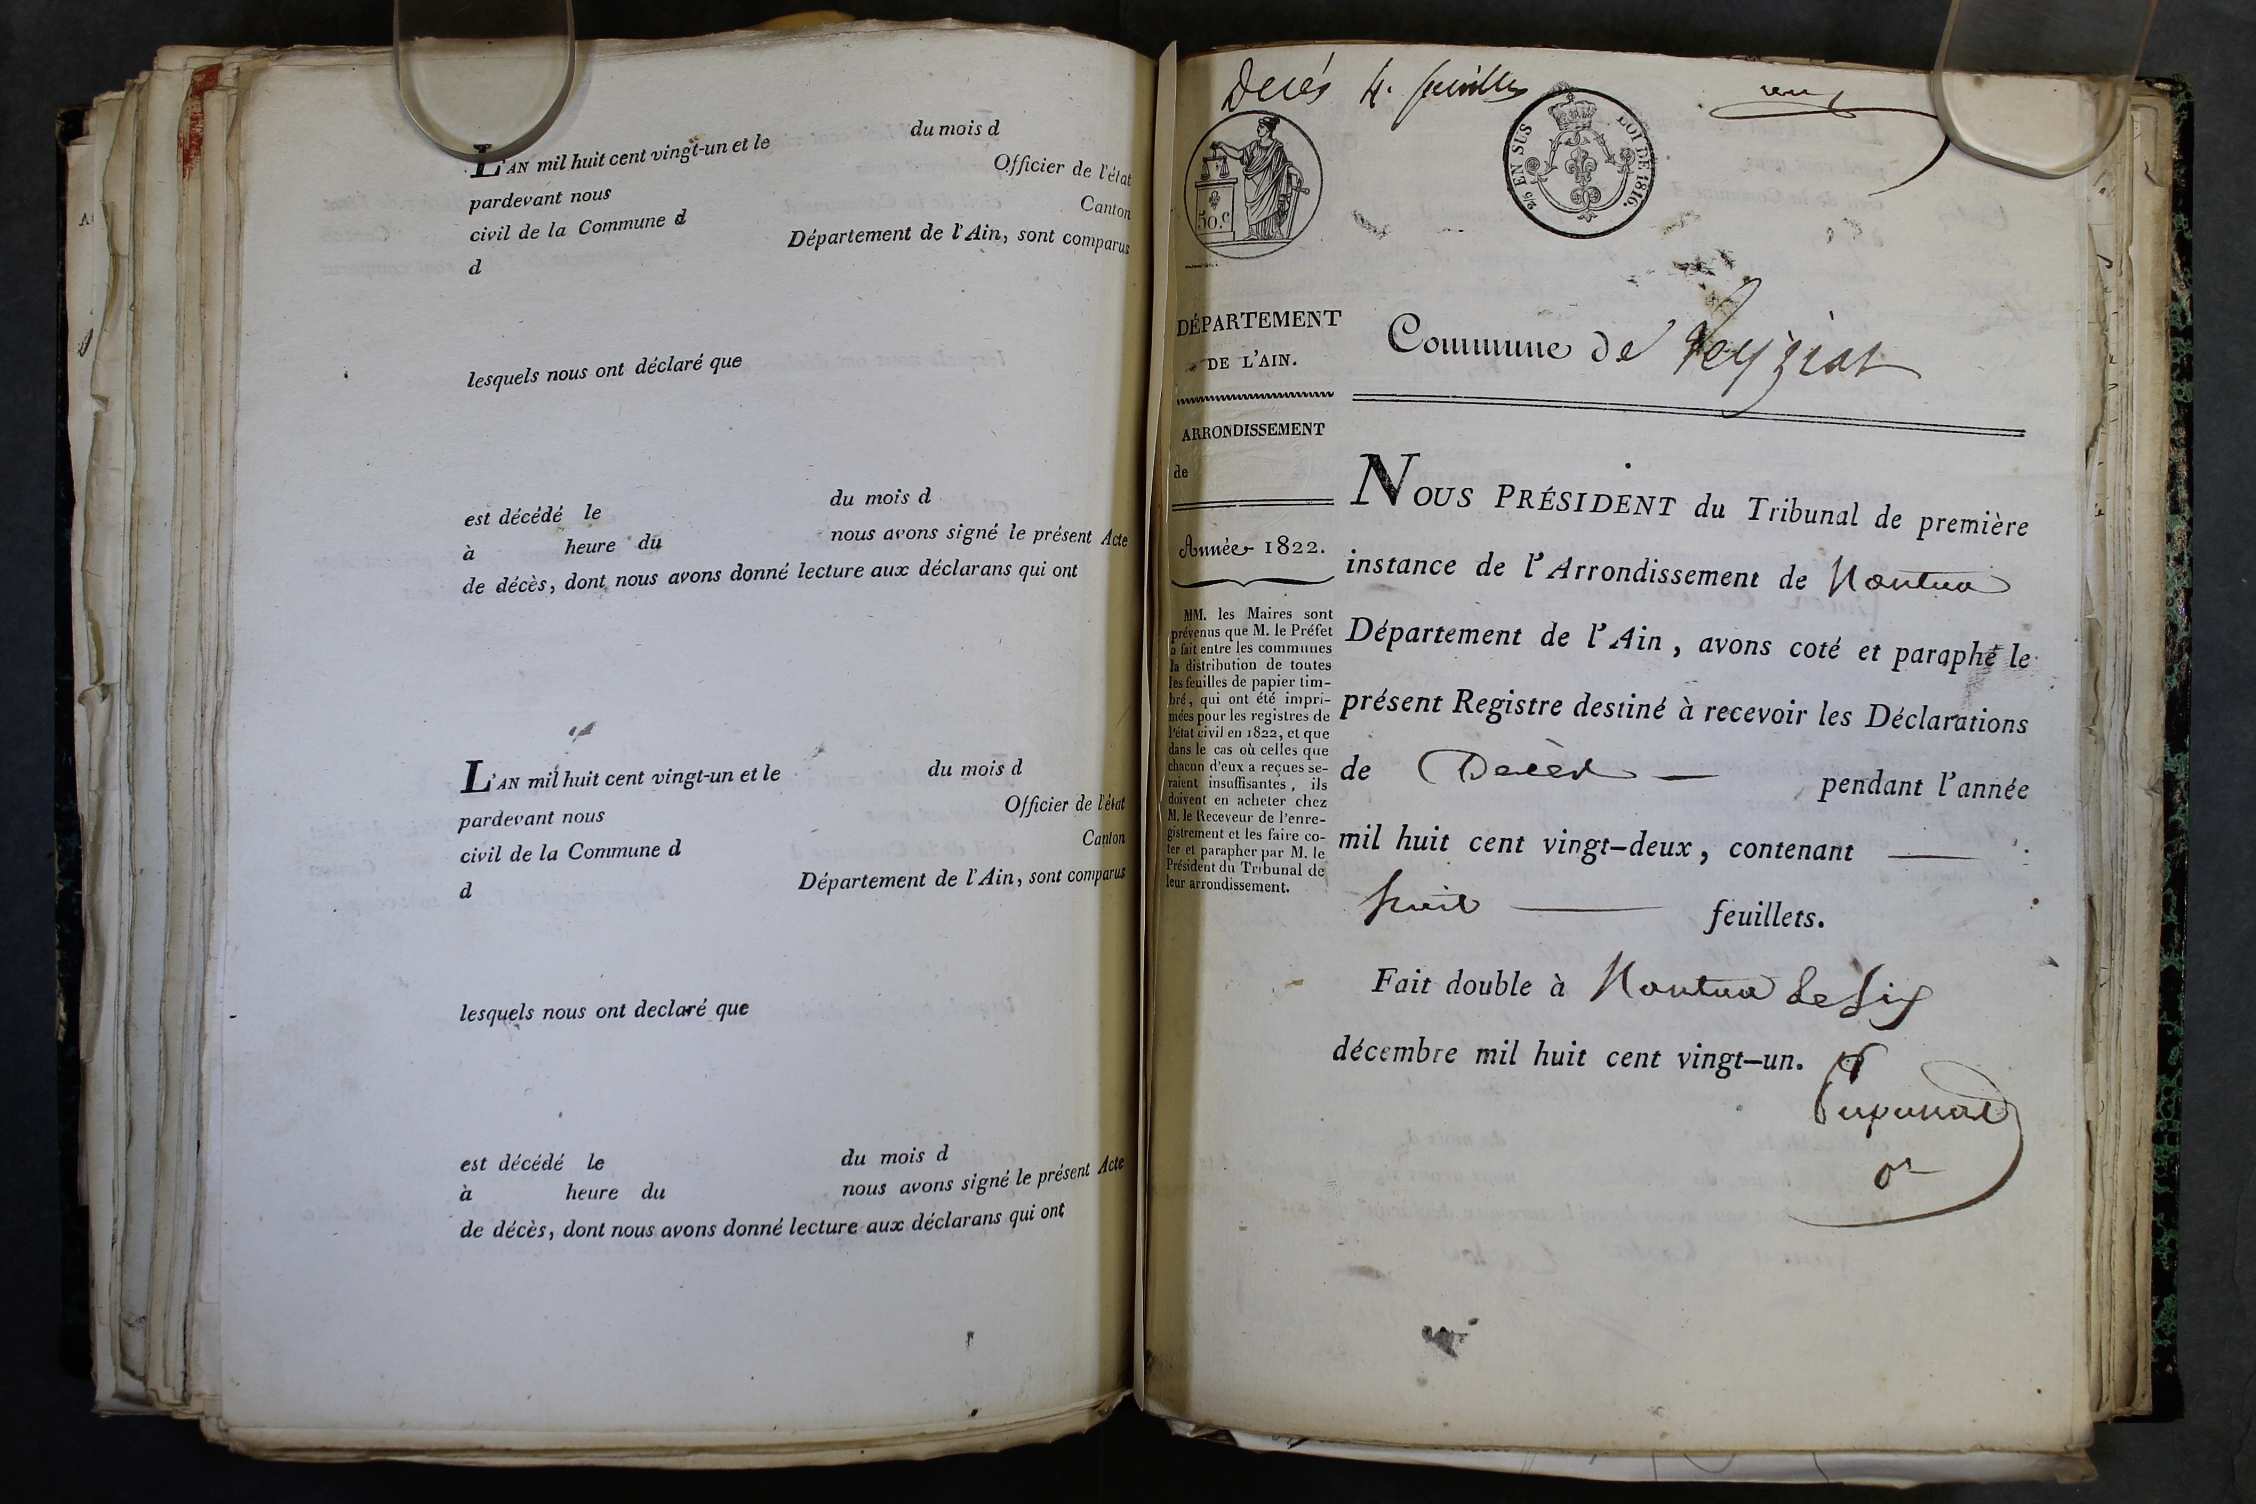 L'AN mil huit cent vingt-un et le du mois d
pardevant nous Officier de l'état
civil de la Commune d Canton
d Département de l'Ain, sont comparus
lesquels nous ont déclaré que
est décédé le du mois d
à heure du nous avons signé le présent Acte
de décès, dont nous avons donné lecture aux déclarans qui ont
L'AN mil huit cent vingt-un et le du mois d
pardevant nous Officier de l'état
civil de la Commune d Canton
d Département de l'Ain, sont comparus
lesquels nous ont declaré que
est décédé le du mois d
à heure du nous avons signé le présent Acte
de décès, dont nous avons donné lecture aux déclarans qui ont
Decés 4. feuilles
50.c
2/5 EN SUS LOI DE 1816.
DÉPARTEMENT
DE L'AIN.
ARRONDISSEMENT
de
Année 1822.
MM. les Maires sont
prévenus que M. le Préfet
a fait entre les communes
la distribution de toutes
les feuilles de papier tim-
bré, qui ont été impri-
mées pour les registres de
l'état civil en 1822, et que
dans le cas où celles que
chacun d'eux a reçues se-
raient insuffisantes, ils
doivent en acheter chez
M. le Receveur de l'enre-
gistrement et les faire co-
ter et parapher par M. le
Président du Tribunal de
leur arrondissement.
Commune de Veyziat
NOUS PRÉSIDENT du Tribunal de première
instance de l'Arrondissement de Nantua
Département de l'Ain, avons coté et paraphé le
présent Registre destiné à recevoir les Déclarations
de Décès pendant l'année
mil huit cent vingt-deux, contenant
huit feuillets.
Fait double à Nantua le six
décembre mil huit cent vingt-un.